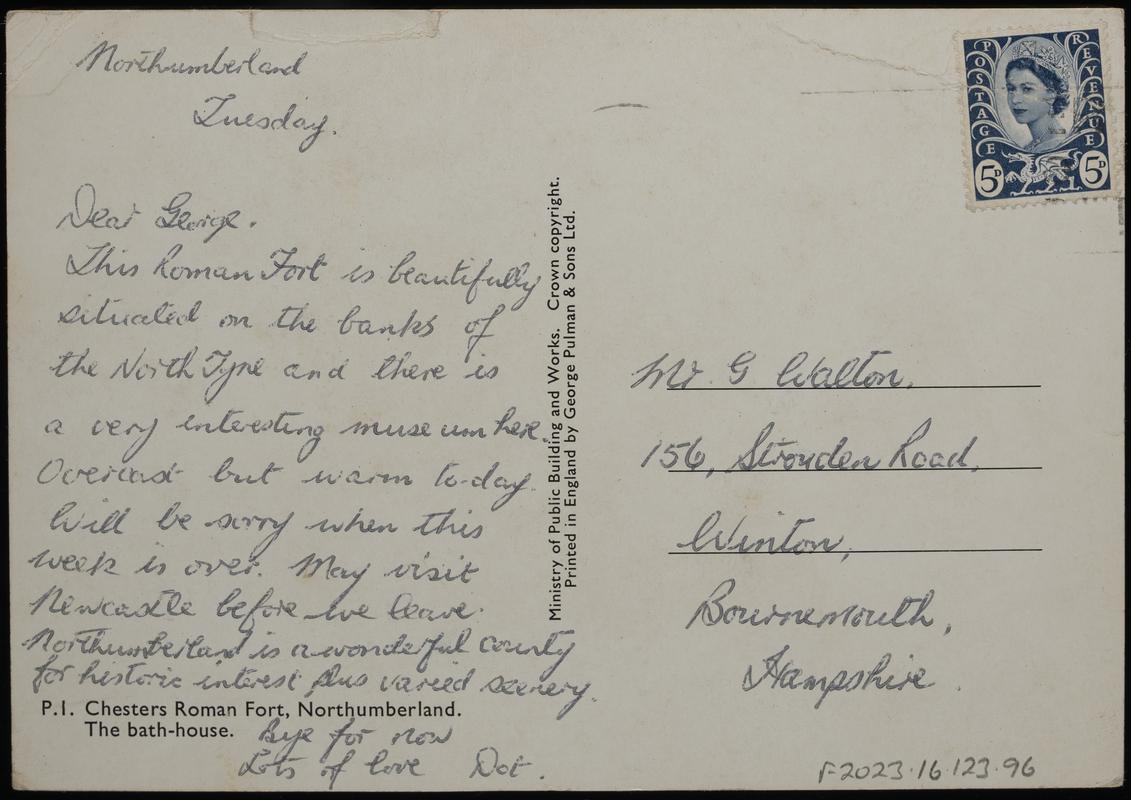 Northumberland
Tuesday.
Dear George.
This Roman Fort is beautifully
situated on the banks of
the North Tyne and there is
a very interesting museum here.
Overcast but warm to-day.
Will be sorry when this
week is over. May visit
Newcastle before we leave.
Northumberland is a wonderful county
for historic interest plus varied scenery.
P.1. Chesters Roman Fort, Northumberland.
The bath-house.
Bye for now
Lots of love Dot.
Ministry of Public Building and Works. Crown copyright.
Printed in England by George Pulman & Sons Ltd.
POSTAGE REVENUE
5D 5D
Mr. G Walton,
156, Strouden Road,
Winton,
Bournemouth,
Hampshire.
F2023.16.123.96